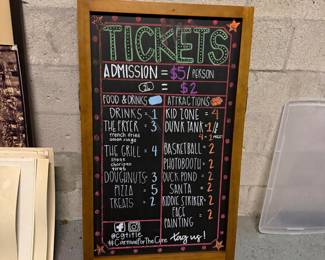 TICKETS
ADMISSION = $5/PERSON
= $2
FOOD & DRINKS ATTRACTIONS
DRINKS = 1
THE FRYER = 3
french fries
onion rings
THE GRILL = 4
DOUGHNUTS = 3
PIZZA = 5
TREATS = 2
KID ZONE = 4
DUNK TANK = 1/2
BASKETBALL = 2
PHOTOBOOTH = 2
DUCK POND = 2
SANTA = 2
KIDDIE STRIKER = 2
FACE PAINTING = 2
@cgtitle
#CarnivalForTheCure
tag us!